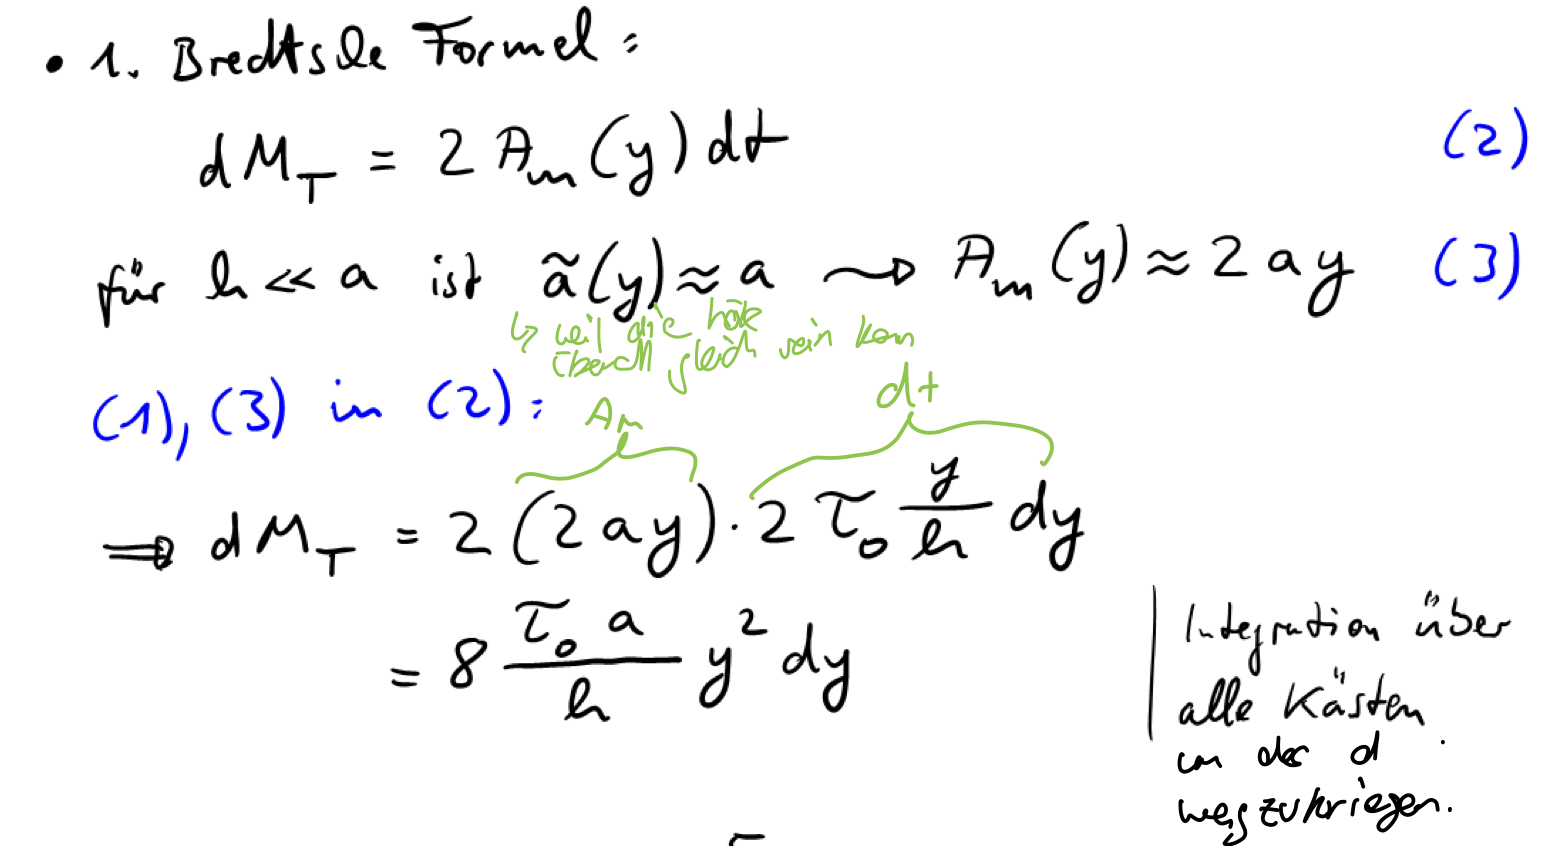 • 1. Bredtsche Formel:
dM_T = 2 A_m(y) dt (2)
für h << a ist ã(y) ≈ a ⇝ A_m(y) ≈ 2 a y (3)
↳ weil die höhe
überall gleich sein kann
(1), (3) in (2):
A_m
dt
⇒ dM_T = 2 (2 a y) · 2 τ₀ y/h dy
= 8 τ₀ a/h y² dy
Integration über
alle Kästen
um das d
wegzukriegen.